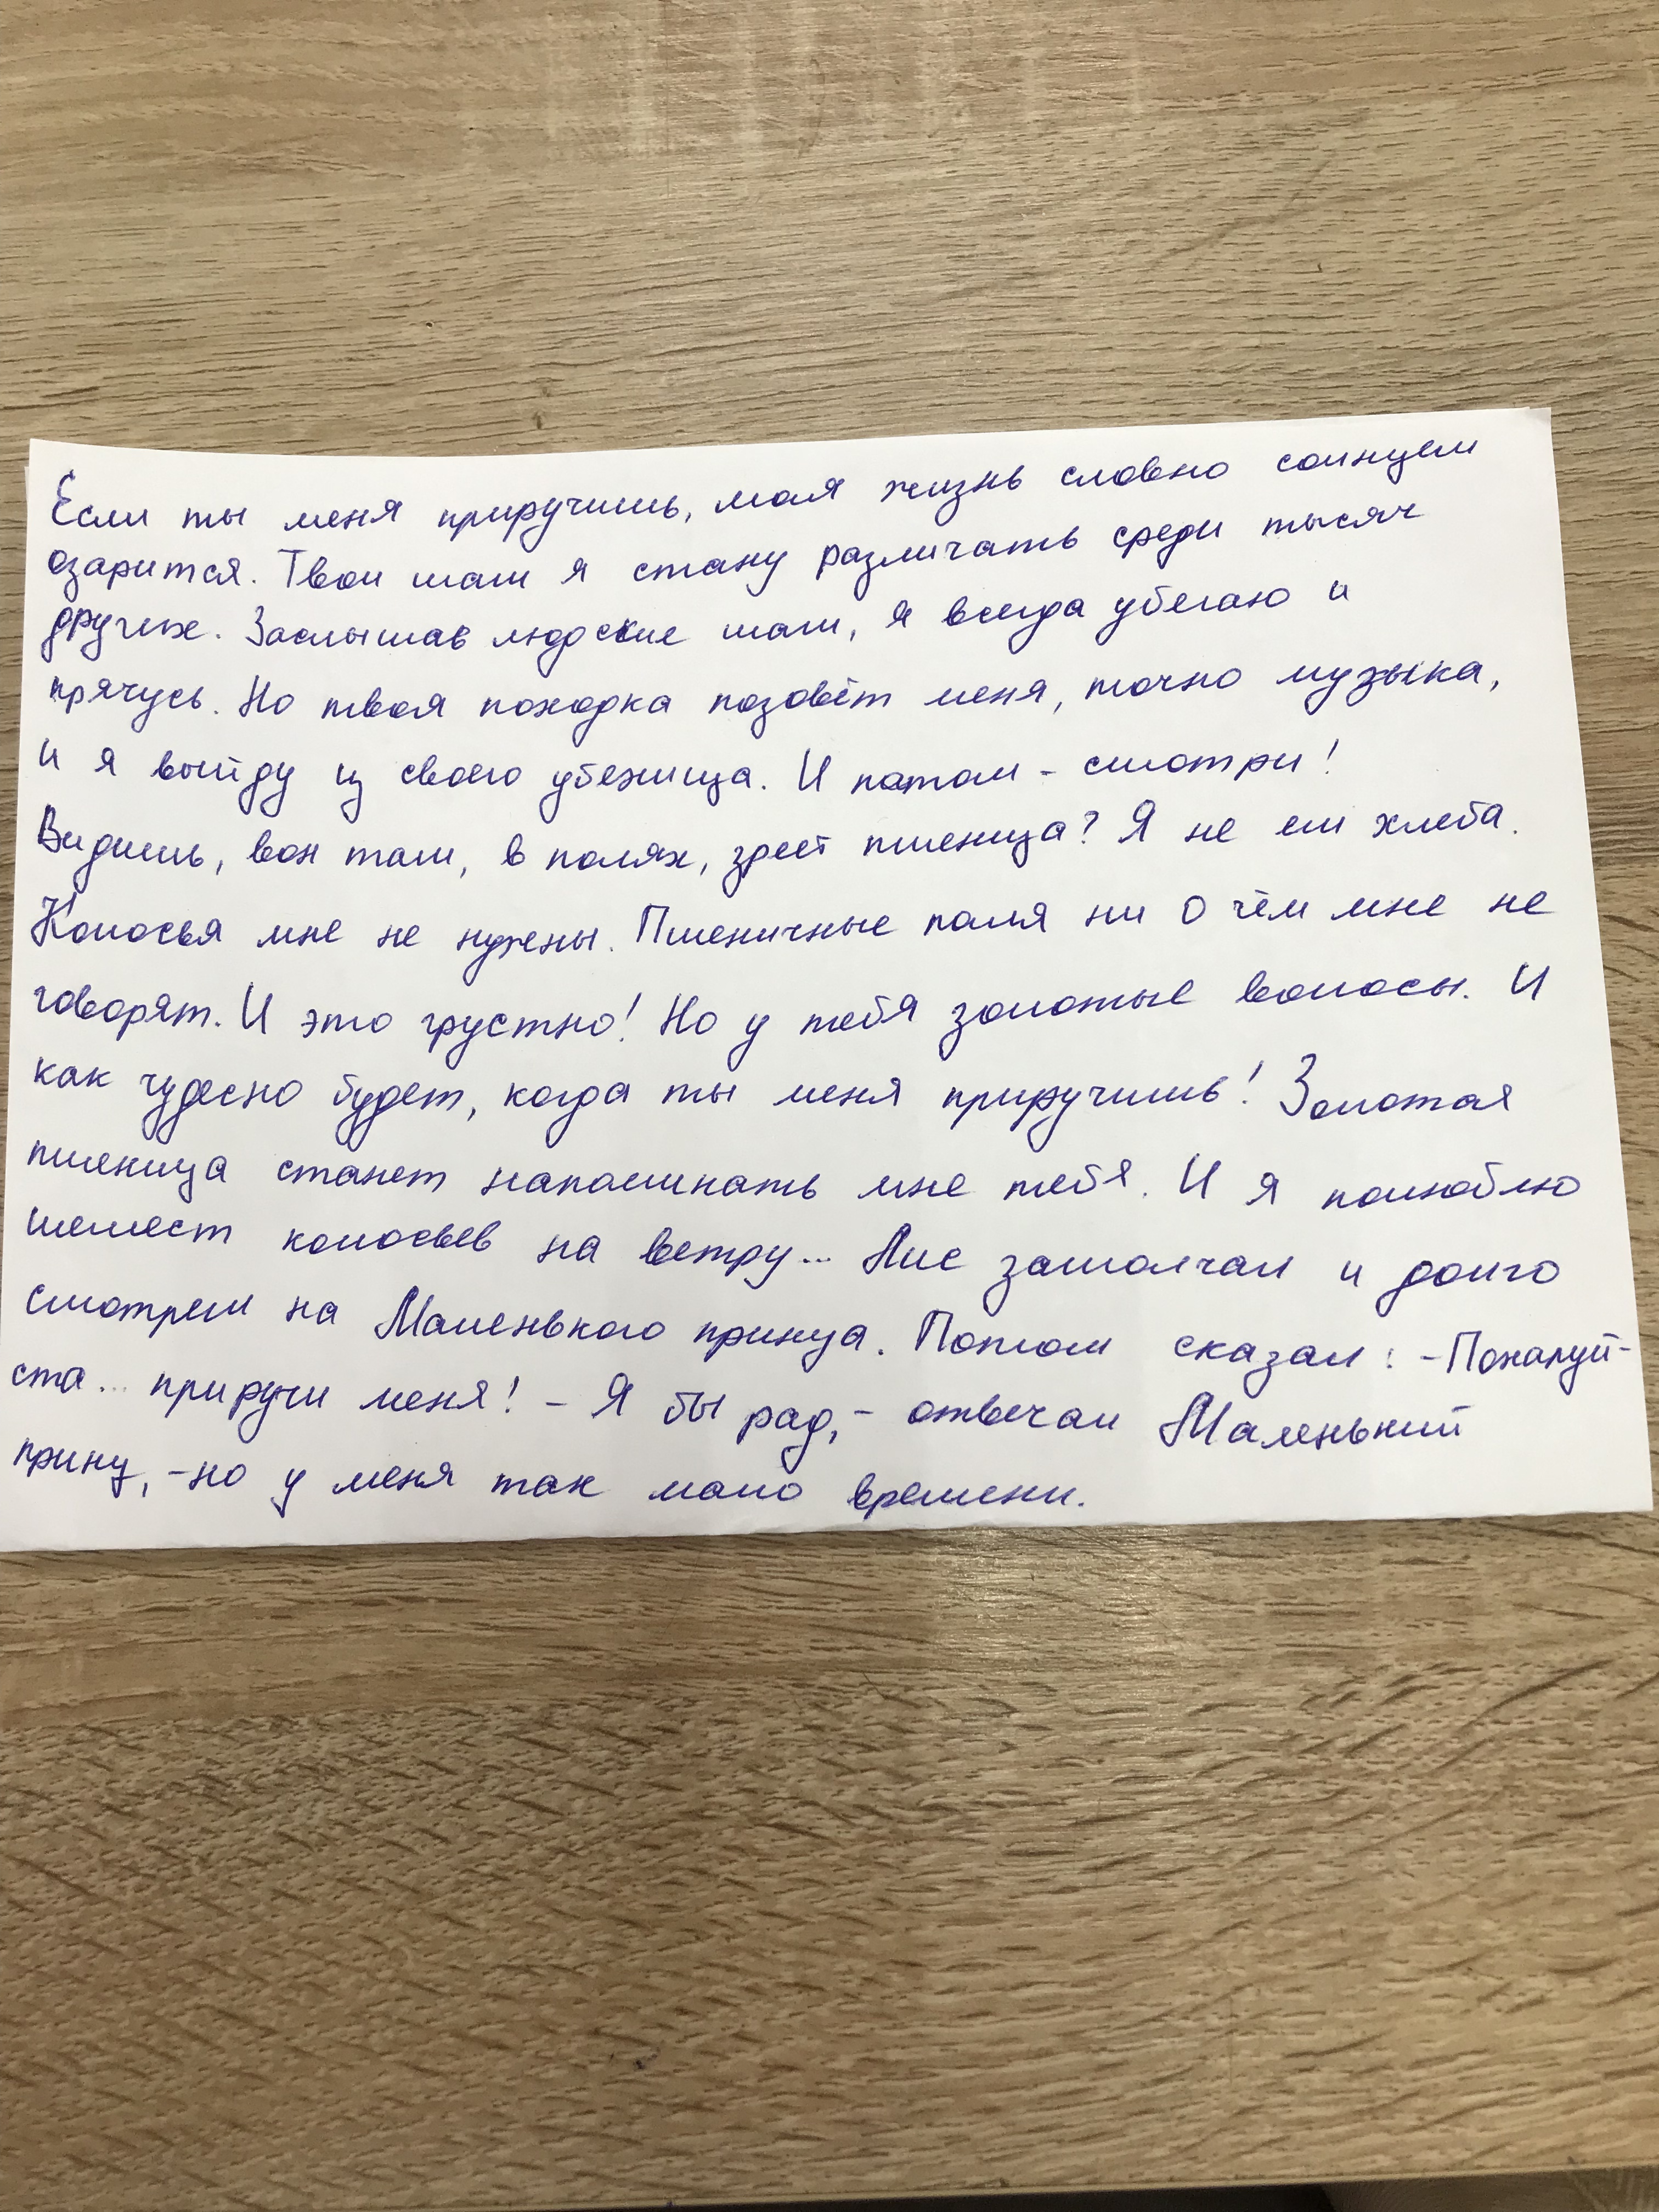 Если ты меня приручишь, моя жизнь словно солнцем
озарится. Твои шаги я стану различать среди тысяч
других. Заслышав людские шаги, я всегда убегаю и
прячусь. Но твоя походка позовёт меня, точно музыка,
и я выйду из своего убежища. И потом - смотри!
Видишь, вон там, в полях, зреет пшеница? Я не ем хлеба.
Колосья мне не нужны. Пшеничные поля ни о чём мне не
говорят. И это грустно! Но у тебя золотые волосы. И
как чудесно будет, когда ты меня приручишь! Золотая
пшеница станет напоминать мне тебя. И я полюблю
шелест колосьев на ветру... Лис замолчал и долго
смотрел на Маленького принца. Потом сказал: - Пожалуй-
ста... приручи меня! - Я бы рад, - отвечал Маленький
принц, - но у меня так мало времени.